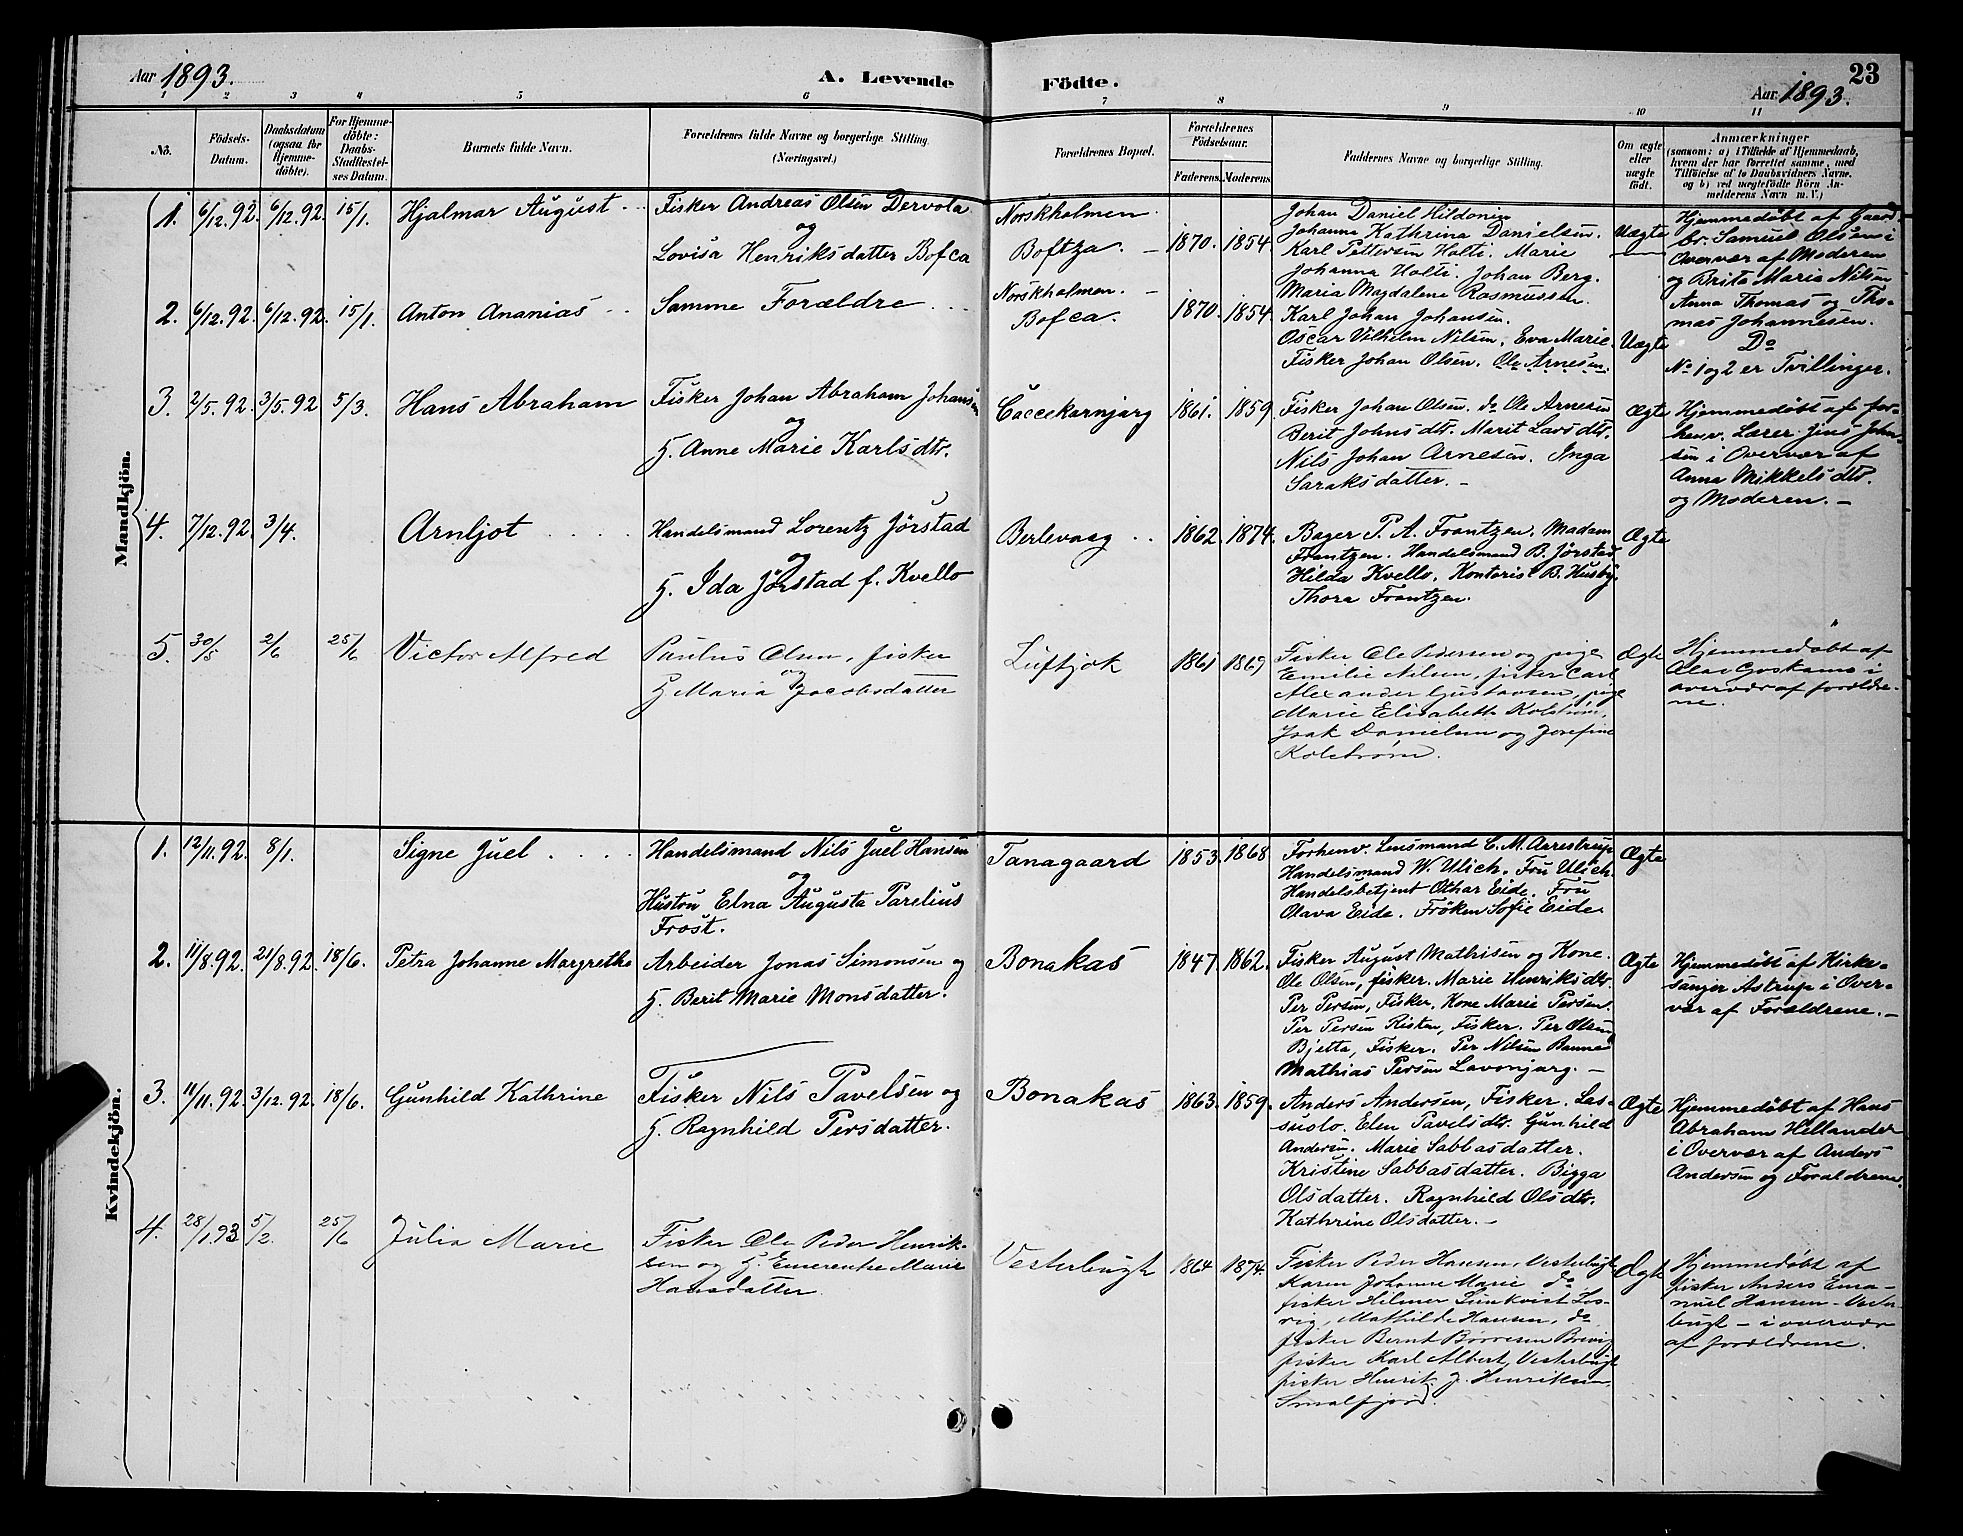 Aar 1893. A. Levende Födte. Aar 1893. 23
1 2 3 4 5 6 7 8 9 10 11
No.
Födsels-
Datum.
Daabsdatum
(ogsaa for
Hjemme-
døbte).
For Hjemme-
døbte:
Daabs-
Stadfæstel-
ses Datum.
Barnets fulde Navn.
Forældrenes fulde Navne og borgerlige Stilling.
(Næringsvei.)
Forældrenes Bopæl.
Forældrenes
Födselsaar.
Faderens. Moderens.
Faddernes Navne og borgerlige Stilling.
Om ægte
eller
uægte
født.
Anmærkninger
(saasom: a) i Tilfælde af Hjemmedaab,
hvem der har forrettet samme, med
Tilföielse af to Daabsvidners Navne,
og b) ved uægtefödte Börn An-
melderens Navn m. V.)
Mandkjön.
1. 6/12.92. 6/12.92. 15/1. Hjalmar August
Fisker Andreas Olsen Dervola
og
Lovisa Henriksdatter Bofca
Norskholmen.
Boftza. 1870. 1854
Johan Daniel Hildonin
Johanna Kathrina Danielsen.
Karl Pettersen Holti. Marie
Johanna Holti. Johan Berg.
Maria Magdalena Rasmussen.
Uægte
Hjemmedøbt af Gaard
br. Samuel Olsen i
Overvær af Moderen
og Brita Maria Nilsen
2. 6/12.92. 6/12.92. 15/1. Anton Ananias
Samme Forældre
Norskholmen.
Bofca. 1870. 1854
Karl Johan Johansen.
Oscar Vilhelm Nilsen, Eva Marie.
Fisker Johan Olsen. Ole Arnesen.
Uægte
Anna Thomas og Tho-
mas Johannesen.
Do
No 1 og 2 er Tvillinger.
3. 2/5.92. 3/5.92 5/3. Hans Abraham
Fisker Johan Abraham Johansen
og
H. Anne Marie Karlsdtr.
Caccekarnjarg 1861. 1859
Fisker Johan Olsen. do Ole Arnesen
Berit Johnsdtr. Marit Larsdtr.
Nils Johan Arnesen. Inga
Saraksdatter.
Ægte
Hjemmedøbt af for-
henv. Lærer Jens John-
sen i Overvær af
Anna Mikkelsdtr.
og Moderen.
4. 7/12.92. 3/4. Arnljot
Handelsmand Lorentz Jørstad
og
H. Ida Jørstad f. Kvello
Berlevaag 1862. 1874.
Bager P. A. Frantzen. Madam
Frantzen. Handelsmand B. Jørstad
Hilda Kvello. Kontorist B. Husby.
Thora Frantzen.
Ægte
5. 30/5 2/6 25/6 Victor Alfred
Paulus Olsen, fisker
og
H Maria Jacobsdatter
Luftjok 1861 1869
Fisker Ole Pedersen og pige
Emilie Nilsen, fisker Carl
Alexander Gustavsen, pige
Marie Elisabeth Kolstrøm,
Isak Danielsen og Josefine
Kolstrøm.
Ægte
Hjemmedøbt af
overvær af forældre-
ne.
Kvindekjön.
1. 12/11.92. 8/1. Signe Juel
Handelsmand Nils Juel Hansen
og
Hustru Elna Augusta Parelius
Frost.
Tanagaard 1853. 1868
Forhenv. Lensmand C. M. Arrestrup
Handelsmand W. Ulich. Fru Ulich.
Handelsbetjent Othar Eide. Fru
Olava Eide. Frøken Sofie Eide
Ægte
2. 11/8.92. 21/8.92. 18/6. Petra Johanne Margrethe
Arbeider Jonas Simonsen og
H. Berit Marie Monsdatter.
Bonakas 1847. 1862.
Fisker August Mathisen og Kone.
Ole Olsen, fisker. Marie Henriksdtr.
Per Persen, Fisker. Kone Marie Persen.
Per Persen Risten, Fisker. Per Olsen
Bjetta, Fisker. Per Nilsen Banne
Mathias Persen Lavonjarg.
Ægte
Hjemmedøbt af Kirke-
sanger Astrup i Over-
vær af Forældrene.
3. 11/11.92. 3/12.92. 18/6. Gunhild Kathrine
Fisker Nils Pavelsen og
H. Ragnhild Persdatter.
Bonakas 1863. 1859.
Anders Andersen, Fisker. Las-
suolo. Elen Pavelsdtr. Gunhild
Andersen. Marie Sabbasdatter.
Kristine Sabbasdatter. Bigga
Olsdatter. Ragnhild Olsdtr.
Kathrine Olsdatter.
Ægte
Hjemmedøbt af Hans
Abraham Hellander
i Overvær af Anders
Andersen og Forældrene.
4. 28/1.93 5/2. 25/6 Julia Marie
Fisker Ole Peder Henrik-
sen og H. Emerentse Marie
Hansdatter.
Vesterbugt 1864 1874.
Fisker Peder Hansen, Vesterbugt
Karen Johanne Marie do
fisker Hilmer Lunkvist Les-
vig, Mathilde Hansen, do
fisker Bernt Børresen Brevig
fisker Karl Albert, Vesterbugt
fisker Henrik J. Henriksen,
Smalfjord.
Ægte
Hjemmedøbt af
fisker Anders Ema-
nuel Hansen - Vester-
bugt - i overvær
af forældrene.